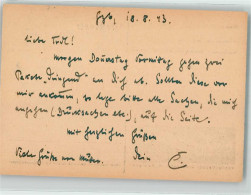 18.8.43.
liebe
morgen Donnerstag Vormittag gehen zwei
an Dich ab. Sollten diese vor
mir ankommen, so lege bitte alle Sachen, die mich
angehen (Drucksachen etc.), auf die Seite.
Mit herzlichen Grüßen
Dein
Grüße von